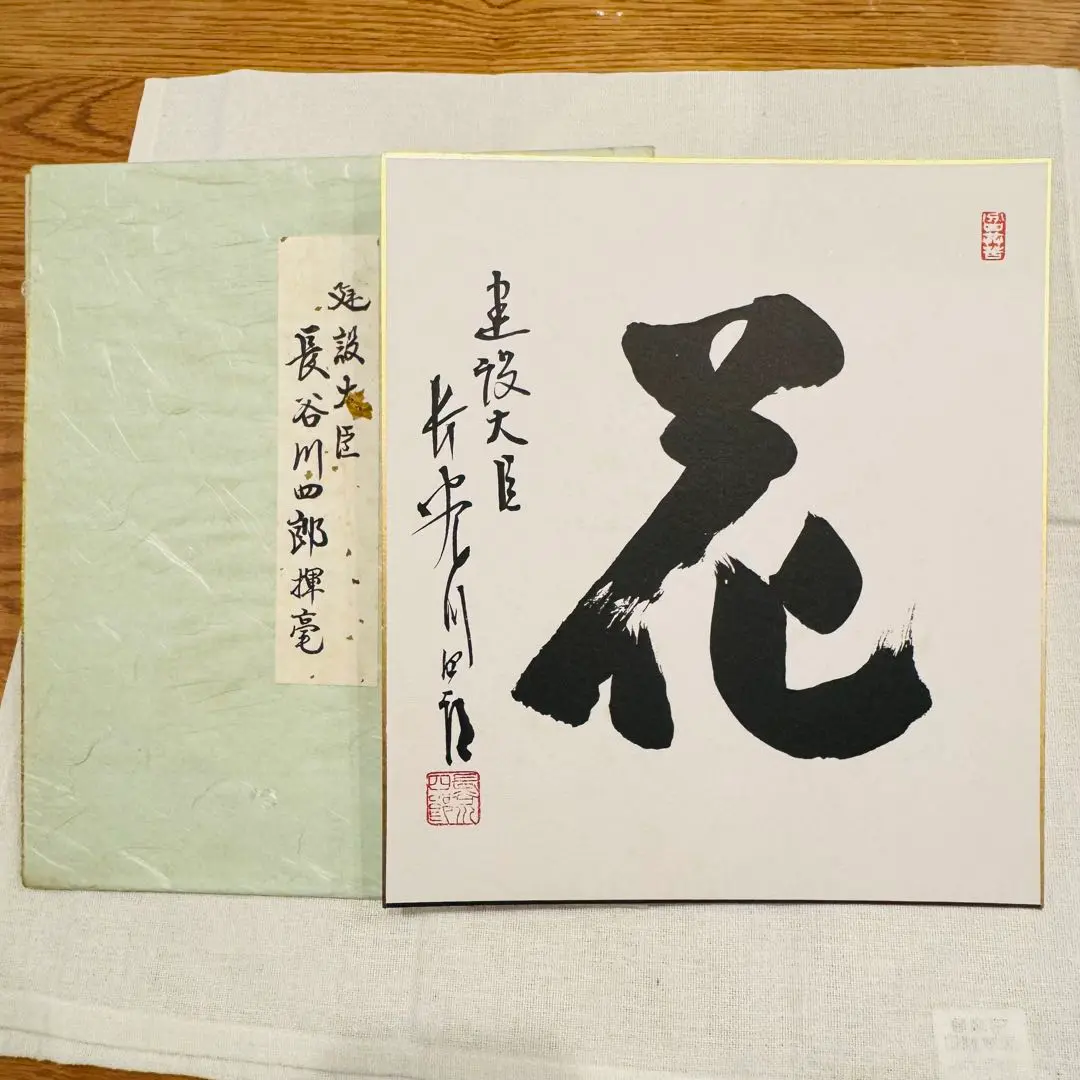 建設大臣
長谷川四郎揮毫
花
建設大臣
長谷川四郎
長谷川四郎